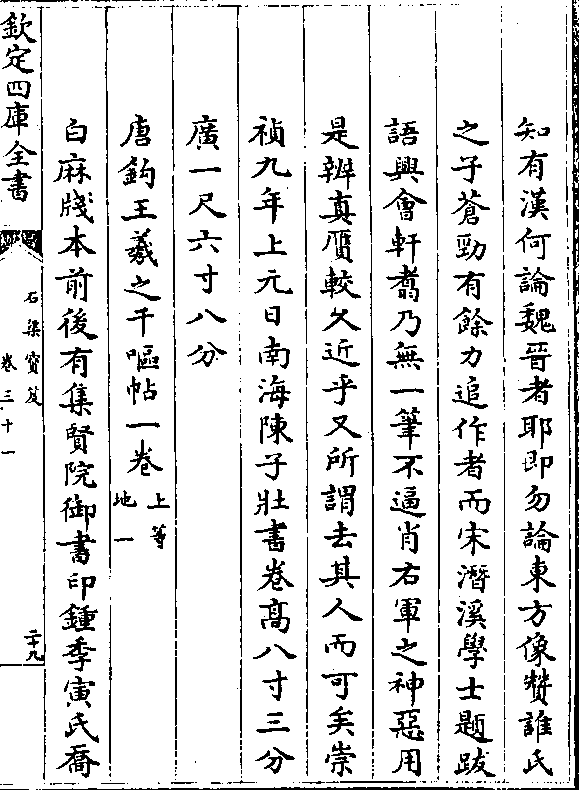 知有漢何論魏晉者耶即勿論東方像贊誰氏
之子蒼勁有餘力追作者而宋潛溪學士題跋
語興會軒翥乃無一筆不逼肖右軍之神惡用
是辨真贋較久近乎又所謂去其人而可矣崇
禎九年上元日南海陳子壯書卷髙八寸三分
廣一尺六寸八分
唐鈎王羲之千嘔帖一卷上等
地一
白麻牋本前後有集賢院御書印鍾季寅氏喬
欽定四庫全書
石渠寶笈
卷三十一
二十九